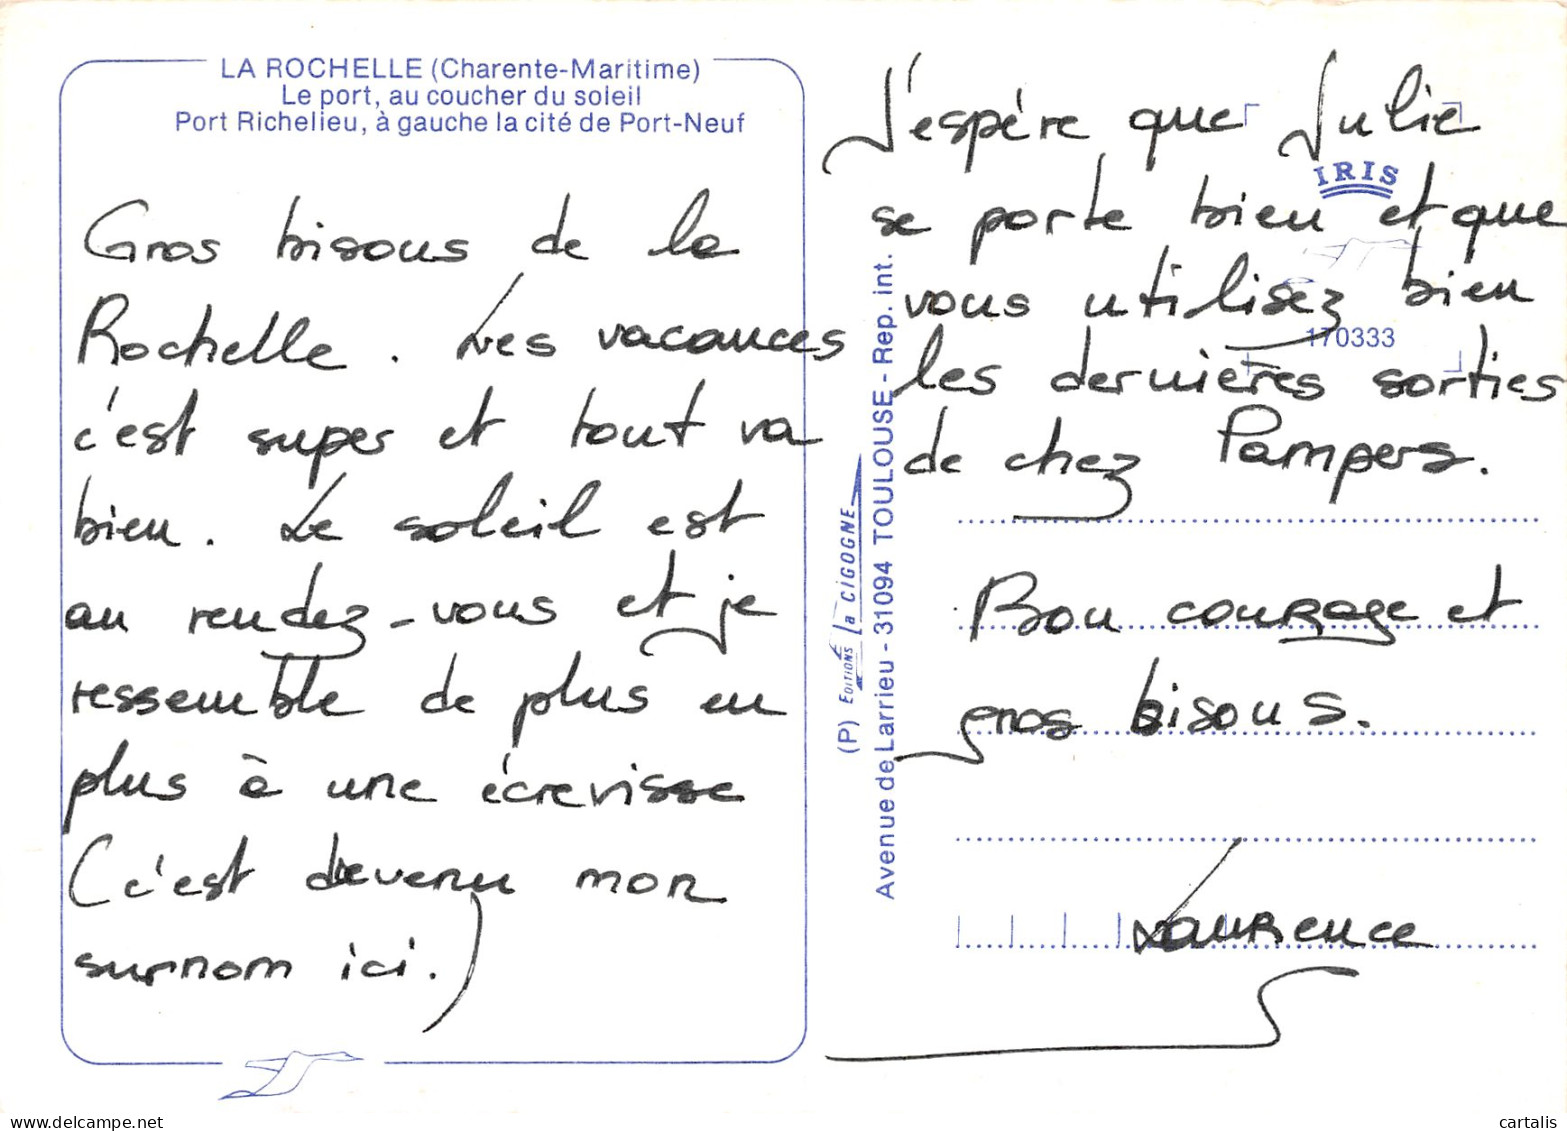 LA ROCHELLE (Charente-Maritime)
Le port, au coucher du soleil
Port Richelieu, à gauche la cité de Port-Neuf
Gros bisous de la
Rochelle. Les vacances
c'est super et tout va
bien. Le soleil est
au rendez-vous et je
ressemble de plus en
plus à une écrevisse
(c'est devenu mon
surnom ici.)
(P) EDITIONS la CIGOGNE
Avenue de Larrieu - 31094 TOULOUSE - Rep. int.
J'espère que Julie
IRIS
se porte bien et que
vous utilisez bien
170333
les dernières sorties
de chez Pampers.
Bon courage et
gros bisous.
Laurence
www.delcampe.net
cartalis